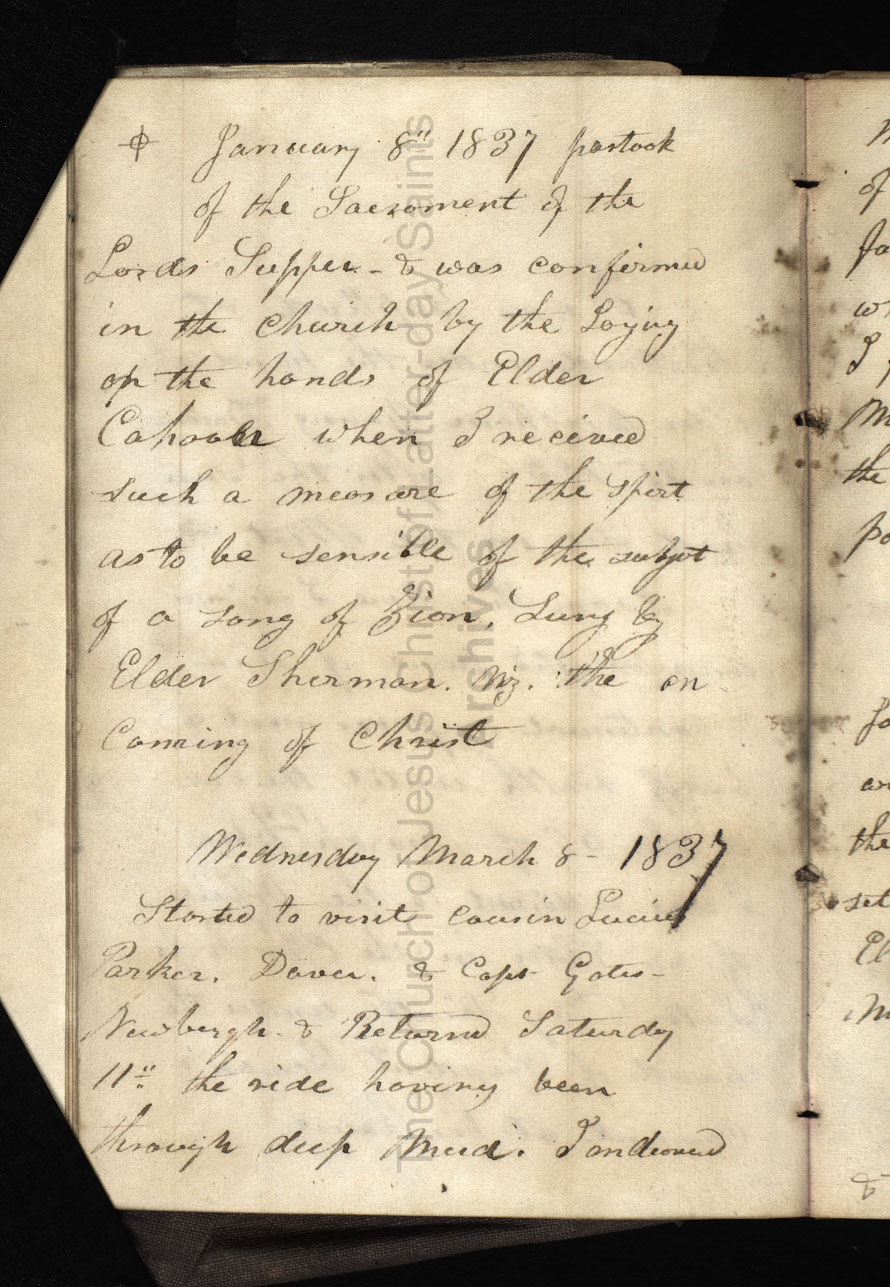 January 8" 1837 partook
of the Sacrament of the
Lords Supper - & was confirmed
in the church by the Laying
on the hands of Elder
Cahoon when I received
such a measure of the spirit
as to be sensible of the subject
of a song of Zion, Sung by
Elder Sherman. Viz. the on
Coming of Christ
Wednesday March 8 - 1837
Started to visit cousin Lucius
Parker. Dover. & Capt Gates -
Newbergh - & Returned Saturday
11" the ride having been
through deep Mud. I
The Church of Jesus Christ of Latter-day Saints
Archives
of
the
I
the
the
&